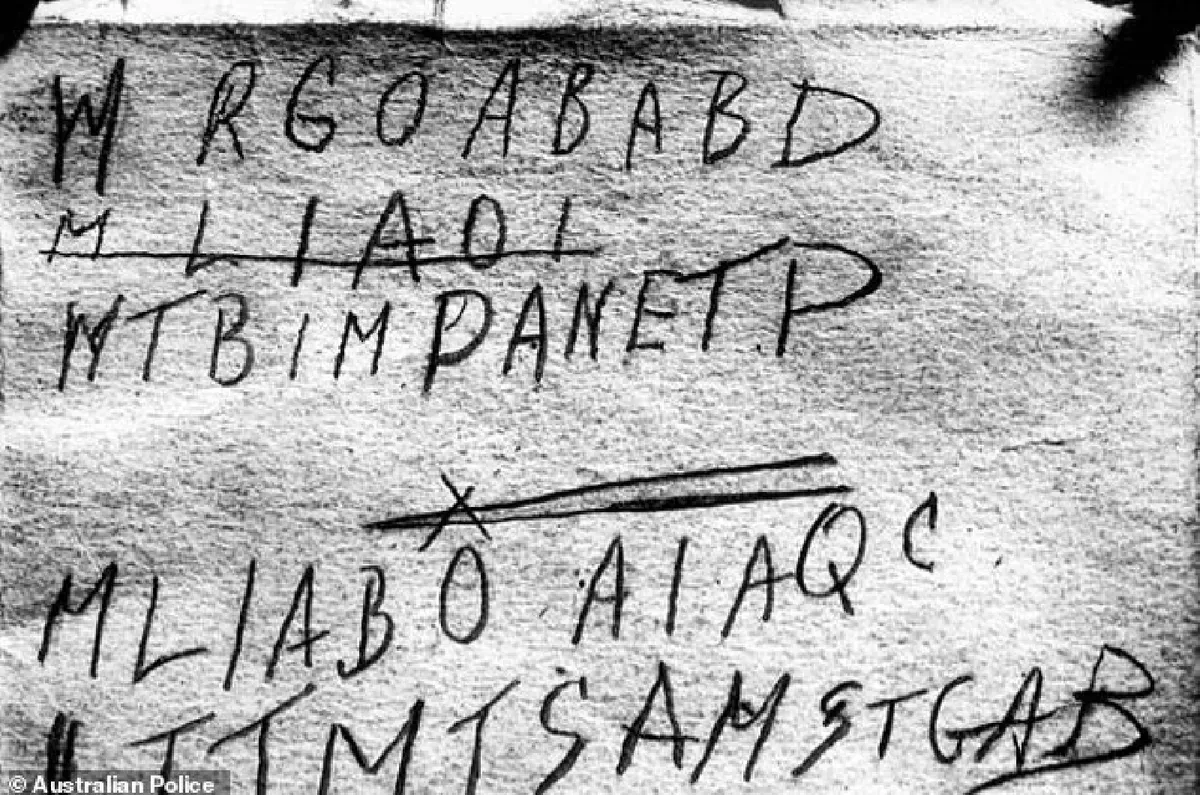 W RGOABABD
MLIAOI
WTBIMPANETP
X
MLIABO AIAQC
ITTMTSAMSTGAB
© Australian Police